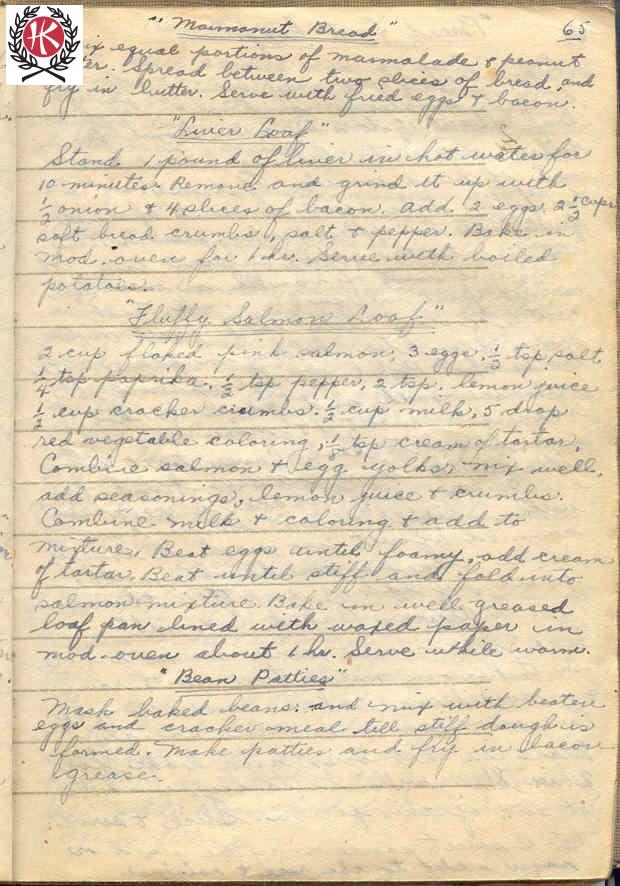 "Marmanut Bread" 65
ix equal portions of marmalade & peanut
ter. Spread between two slices of bread, and
fry in butter. Serve with fried eggs & bacon.
"Liver Loaf"
Stand 1 pound of liver in hot water for
10 minutes. Remove and grind it up with
1/2 onion & 4 slices of bacon. add 2 eggs 2 1/2 cups
soft bread crumbs, salt & pepper. Bake in
mod. oven for 1 hr. Serve with boiled
potatoes.
"Fluffy Salmon Loaf"
2 cup flaked pink salmon, 3 eggs, tsp salt,
1/4 tsp paprika, 1/2 tsp pepper, 2 tsp. lemon juice
1/2 cup cracker crumbs. 1/2 cup milk, 5 drop
red vegetable coloring, tsp cream of tartar.
Combine salmon & egg yolks, mix well,
add seasonings, lemon juice & crumbs.
Combine milk & coloring & add to
mixture. Beat eggs until foamy, add cream
of tartar. Beat until stiff and fold into
salmon mixture. Bake in well greased
loaf pan lined with waxed paper in
mod. oven about 1 hr. Serve while warm.
"Bean Patties"
Mash baked beans. and mix with beaten
eggs and cracker meal till stiff dough is
formed. Make patties and fry in bacon
grease.